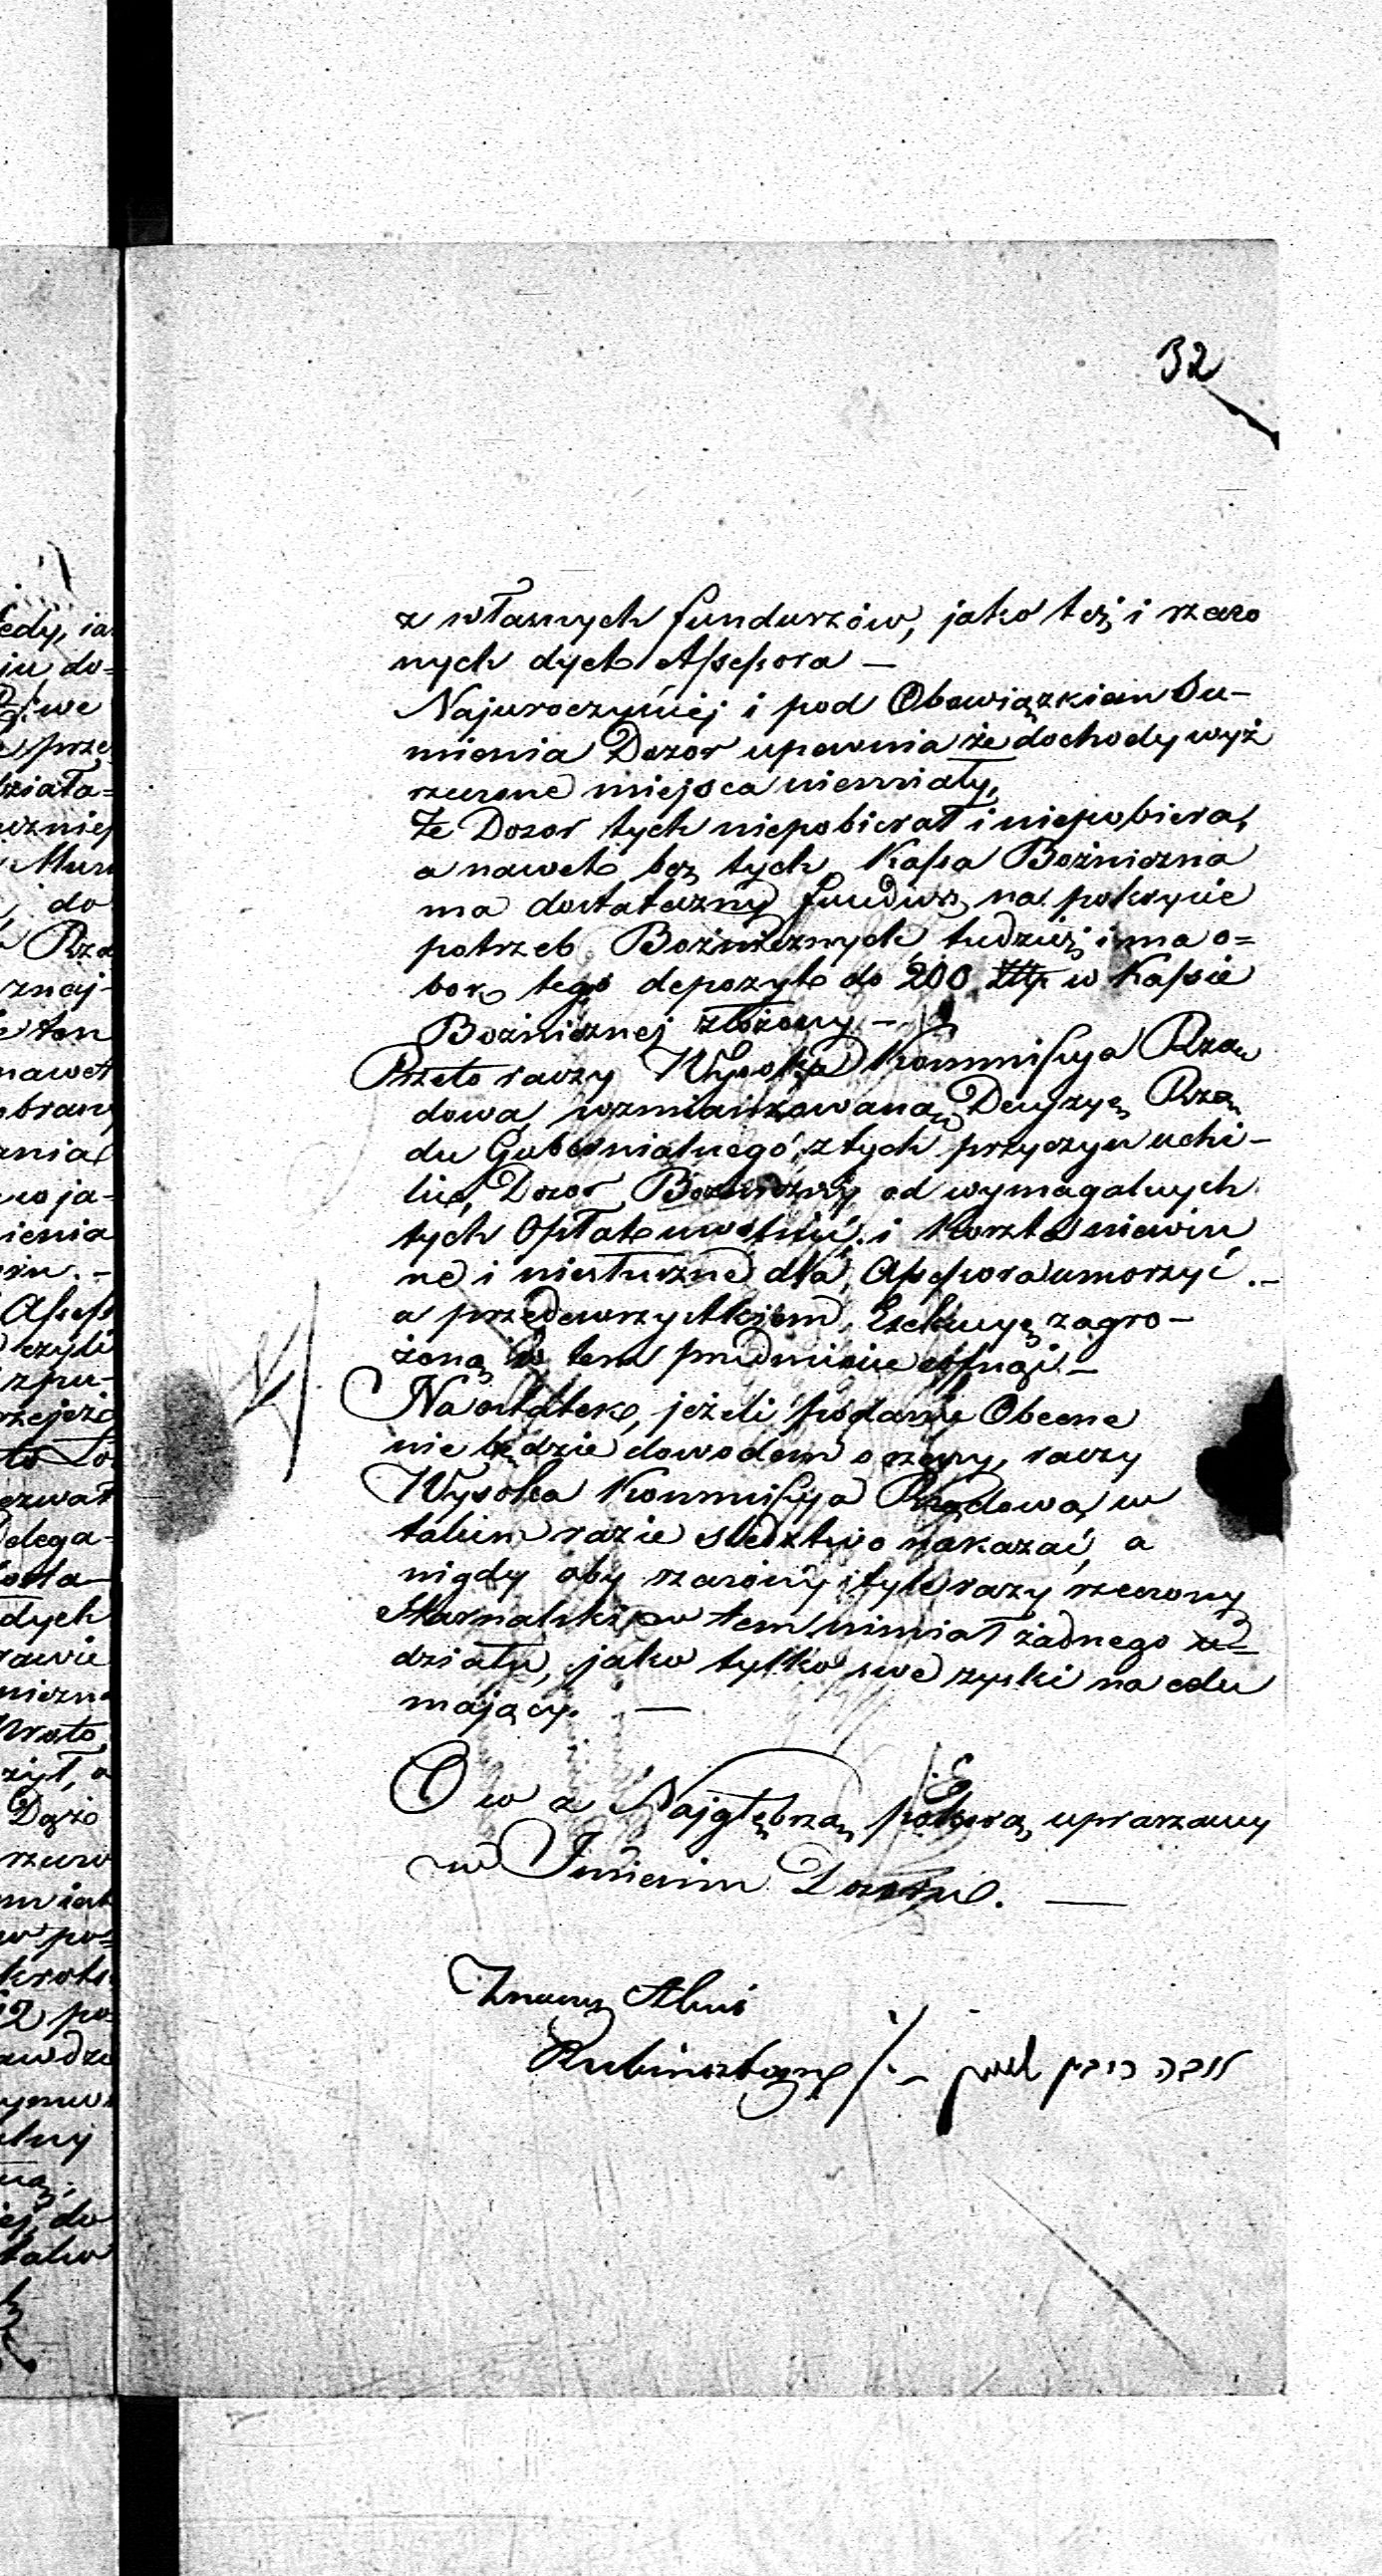 32
z własnych funduszów, jako też i rzeczo
nych dyet Assessora —
Najuroczyściej i pod Obowiązkiem Su-
mienia Dozor upewnia że dochody wyż
rzeczone miejsca niemiały,
Że Dozor tych niepobierał i niepobiera,
a nawet bez tych, Kassa Bożniczna
ma dostateczny fundusz na pokrycie
potrzeb Bożnicznych, tudzież i ma o=
bok tego depozyt do 200 Złp. w Kassie
Bożnicznej złożony —
Przeto raczy Wysoka Kommissya Rzą
dowa, wzmiankowaną Decyzyę Rzą
du Gubernialnego, z tych przyczyn uchi-
lić, Dozor Bożniczny od wymagalnych
tych Opłat uwolnić, i Koszta niewin
ne i niesłuszne dla Assessora umorzyć. —
a przedewszystkiem, Exekucyę zagro-
żoną w tem przedmiocie cofnąć. —
Na ostatek, jeżeli podanie Obecne
nie będzie dowodem o rzeczy, raczy
Wysoka Kommissya Rządowa, w
takim razie sledztwo nakazać, a
nigdy aby rzeczony i tyle razy rzeczony
w tem nimiał żadnego u=
działu, jako tylko swe zyski na celu
mający. —
O co z Najgłębszą pokorą upraszamy
w Imieniu Dozoru. —
Rubinsztayn /. —